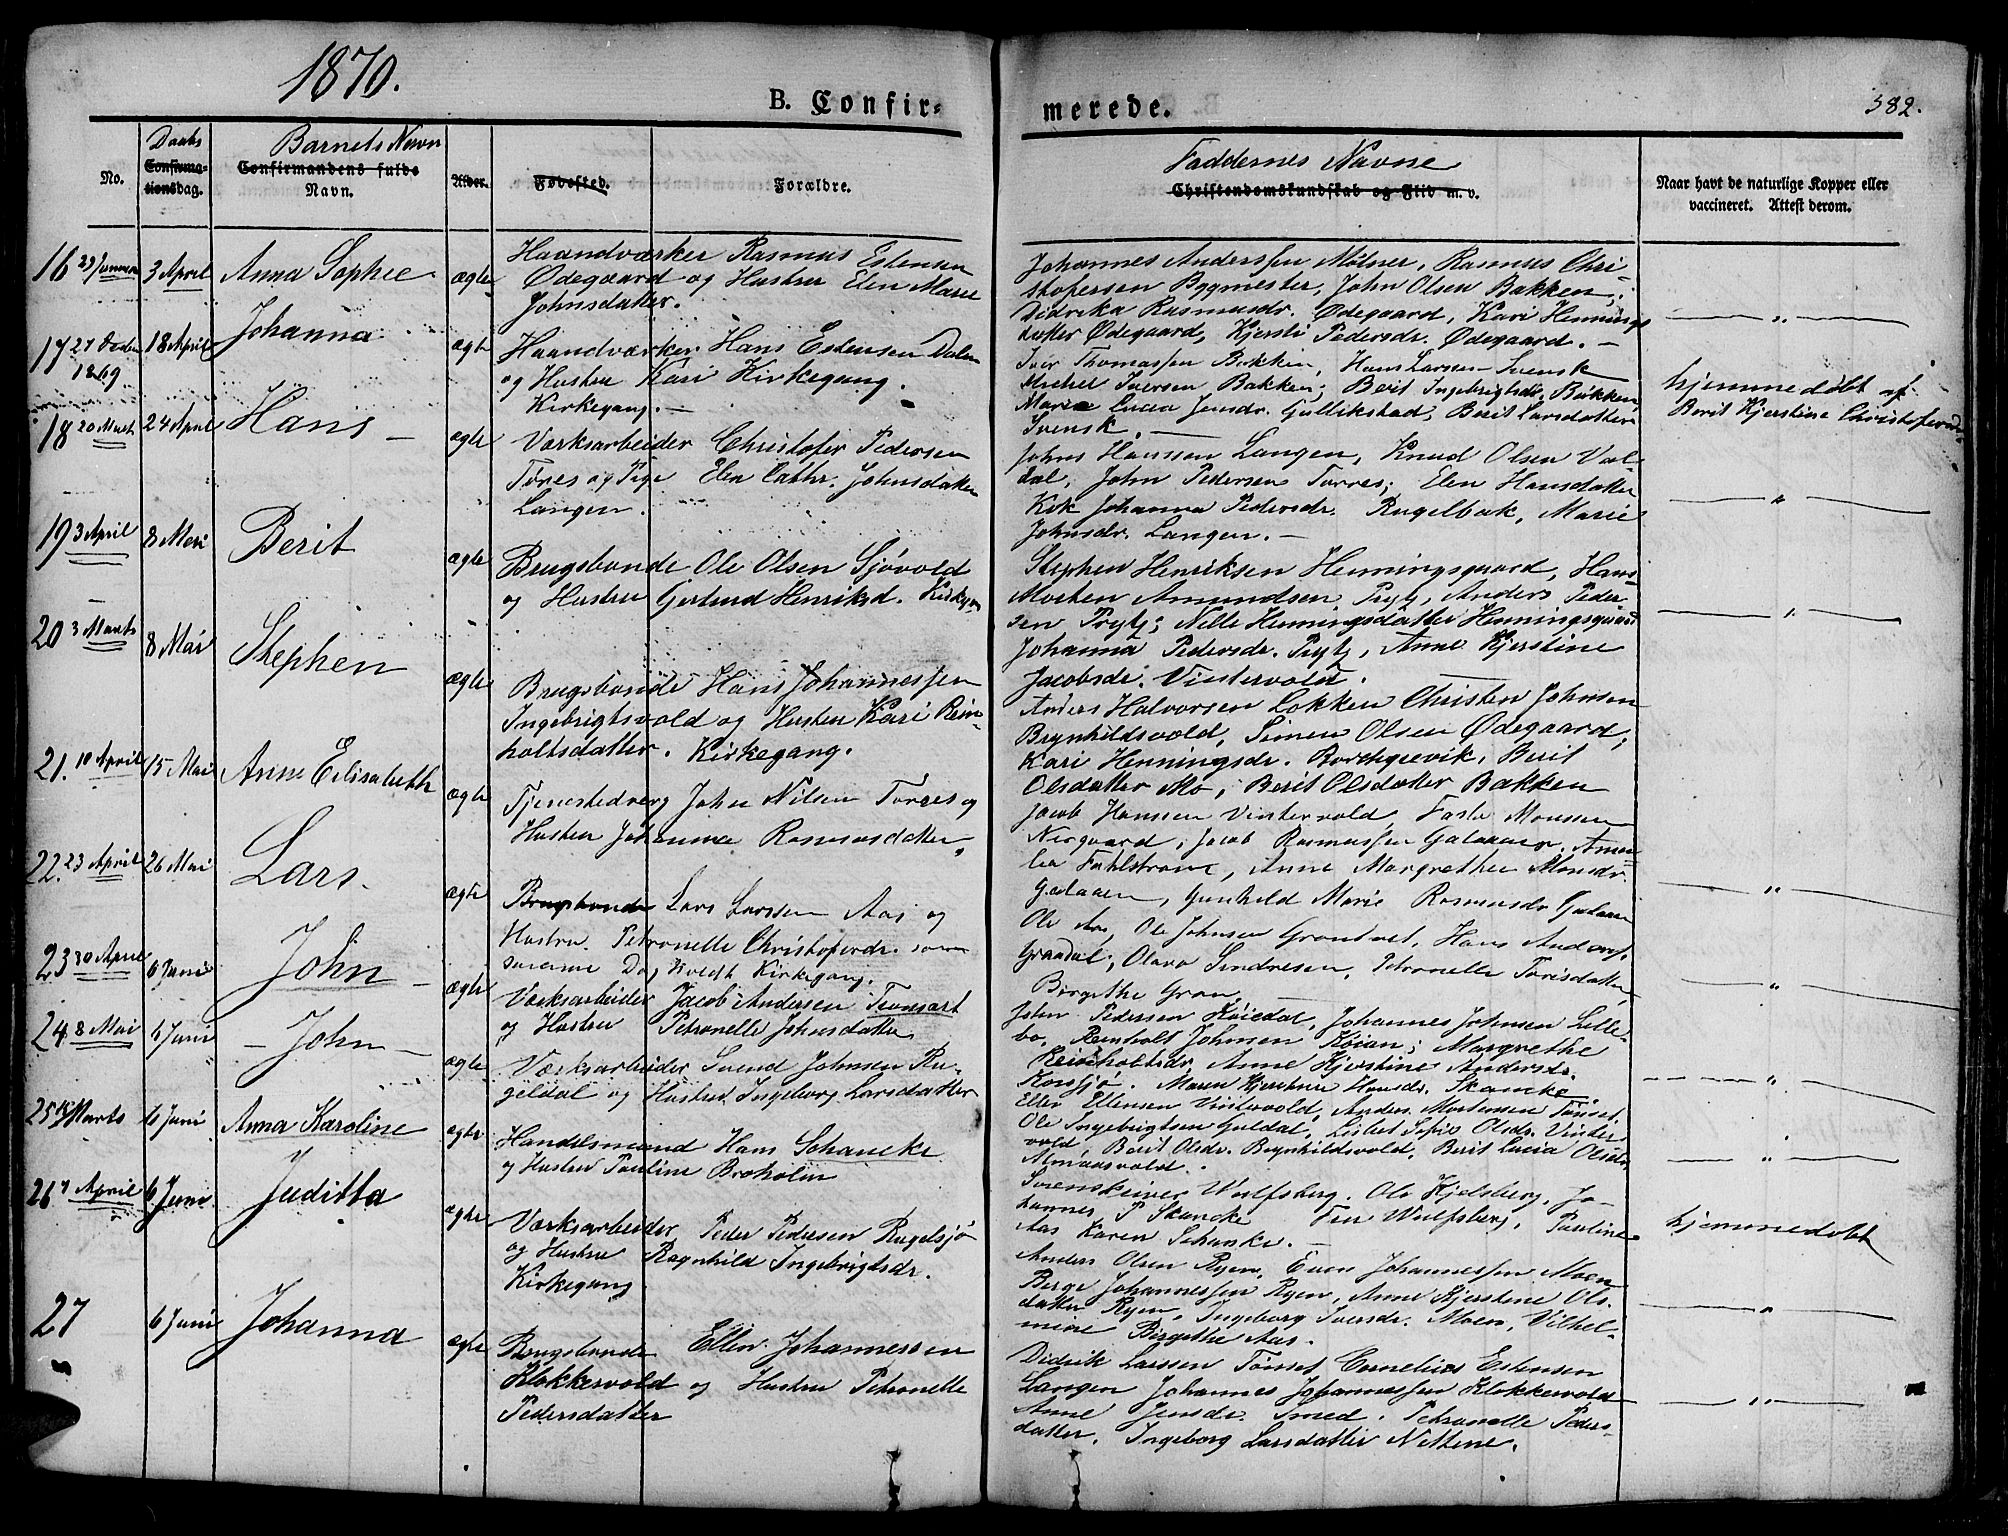 1870.
B. Confir-
merede.
382.
No.
Daabs
Confirma-
tionsdag.
Barnets Navn
Confirmandens fulde
Navn.
Alder.
Fødested.
Forældre.
Faddernes Navne
Christendomskundskab og Flid m. v.
Naar havt de naturlige Kopper eller
vaccineret. Attest derom.
16 29 Januar 3 April Anna Sophie ægte
Haandværker Rasmus Estensen
Ødegaard og Hustru Elen Marie
Johnsdatter.
Johannes Anderssen Mølner, Rasmus Chri-
stofersen Bygmester, John Olsen Bakken,
Didrika Rasmusdr. Ødegaard, Kari Hennings
datter Ødegaard, Kjersti Pedersdr. Ødegaard. —
— " —
17 27 1869 18 April Johanna ægte
Haandværker Hans Estensen Dalen
og Hustru Kari Kirkegang.
Kirkegang. —
Iver Thomassen Bakken, Hans Larssen Svensk
Michel Iversen Bakken, Berit Ingebrigtsdr. Bakken,
Marie Lucia Jensdr. Gullikstad, Berit Larsdatter
Svensk. —
hjemmedøbt af
Berit Kjerstine Christofersd.
18 20 Marts 24 April Hans — ægte
Værksarbeider Christofer Pedersen
Tøres og Pige Elen Cathr. Johnsdatter
Langen.
Johns Hanssen Langen, Knud Olsen Val-
dal, John Pedersen Torres; Elen Hansdatter
Kok Johanna Pedersdr. Rugelbak, Marie
Johnsdr. Langen. —
— " —
19 3 April 8 Mai Berit ægte
Brugsbonde Ole Olsen Sjövold
og Hustru Gertrud Henriksd. Kirkegang
Stephen Henriksen Henningsgaard, Hans
Morten Amundsen Prytz, Anders Peder-
sen Prytz; Nille Henningsdatter Henningsgaard
Johanna Pedersdr. Prytz, Anne Kjerstine
Jacobsdr. Vintervold.
— " —
20 3 Marts 8 Mai Stephen ægte
Brugsbonde Hans Johannessen
Ingebrigtsvold og Hustru Kari Rein-
holtsdatter. Kirkegang.
Anders Halvorsen Løkken Christen Johnsen
Brynhildsvold, Simen Olsen Ødegaard,
Kari Henningsdr. Borchgrevik, Berit
Olsdatter Mo, Berit Olsdatter Bakken
21. 10 April 15 Mai Anne Elisabeth ægte
Tjenestedreng John Nilsen Torres og
Hustru Johanna Rasmusdatter,
Jacob Hanssen Vintervold, Faste Monssen
Nergaard, Jacob Rasmussen Galaaen, Ama-
lia Fahlstrøm, Anne Margrethe Monsdr.
Galaaen, Gunhild Marie Rasmusdr. Galaaen
— " —
22. 23 April 26 Mai Lars. ægte
Brugsbonde Lars Larssen Aas og
Hustru Petronelle Christoferdr. som
samme Dag holdt Kirkegang.
Ole Aas, Ole Johnsen Grøntvet, Hans Anders.
Grøndal, Olava Sindresen, Petronelle Torisdatter,
Birgithe Gran.
— " —
23 30 April 6 Juni John — ægte
Værksarbeider Jacob Andersen Tronsart
og Hustru Petronelle Johnsdatter
John Pedersen Køiedal, Johannes Johnsen Lille-
bo, Reinholt Johnsen Køian; Margrethe
Reinholtsdr. Anne Kjerstine Andersdr.
Korssjø. Maren Kjerstine Hansdr. Skancke.
— " —
24 8 Mai 6 Juni — John — ægte
Værksarbeider Svend Johnsen Ru-
geldal og Hustru Ingeborg Larsdatter
Eller Ellensen Vintervold, Anders Mortensen Tønset
Ole Ingebrigtsen Guldal, Lisbet Sofie Olsdr. Vinter-
vold, Berit Olsdr. Brynhildsvold, Berit Lucia Olsdr.
Almaasvold.
— " —
25 Marts 6 Juni Anna Karoline ægte
Handelsmand Hans Schancke
og Hustru Pauline Broholm
Sorenskriver Wulfsberg, Ole Kjelsberg, Jo-
hannes P Skancke Fru Wulfsberg, Pauline
Aas Karen Schanke. —
hjemmedøbt
26 7 April 6 Juni Juditta ægte
Værksarbeider Peder Pedersen Rugelsjø
og Hustru Ragnhild Ingebrigtsdr.
Kirkegang
Anders Olsen Ryen, Even Johannessen Moen
Berge Johannessen Ryen, Anne Kjerstine Ols-
datter Ryen, Ingeborg Iversdr. Moen, Vilhel-
mine Birgithe Aas.
— " —
27 6 Juni Johanna ægte
Brugsbonde Ellen Johannessen
Klokkervold og Hustru Petronelle
Pedersdatter
Didrik Larssen Tønset Cornelius Estensen
Langen Johannes Johannessen Klokkervold
Anne Jensdr. Smed. Petronelle Peders-
datter, Ingeborg Larsdatter
— " —